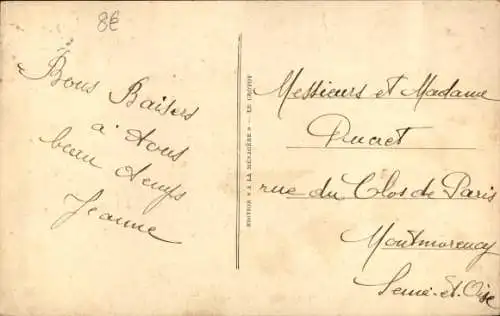 8€
Bons Baisers
à tous
beau temps
Jeanne
EDITION « A LA MÉNAGÈRE » — LE CROTOY
Messieurs et Madame
Ducret
rue du Clos de Paris
Montmorency
Seine-et-Oise